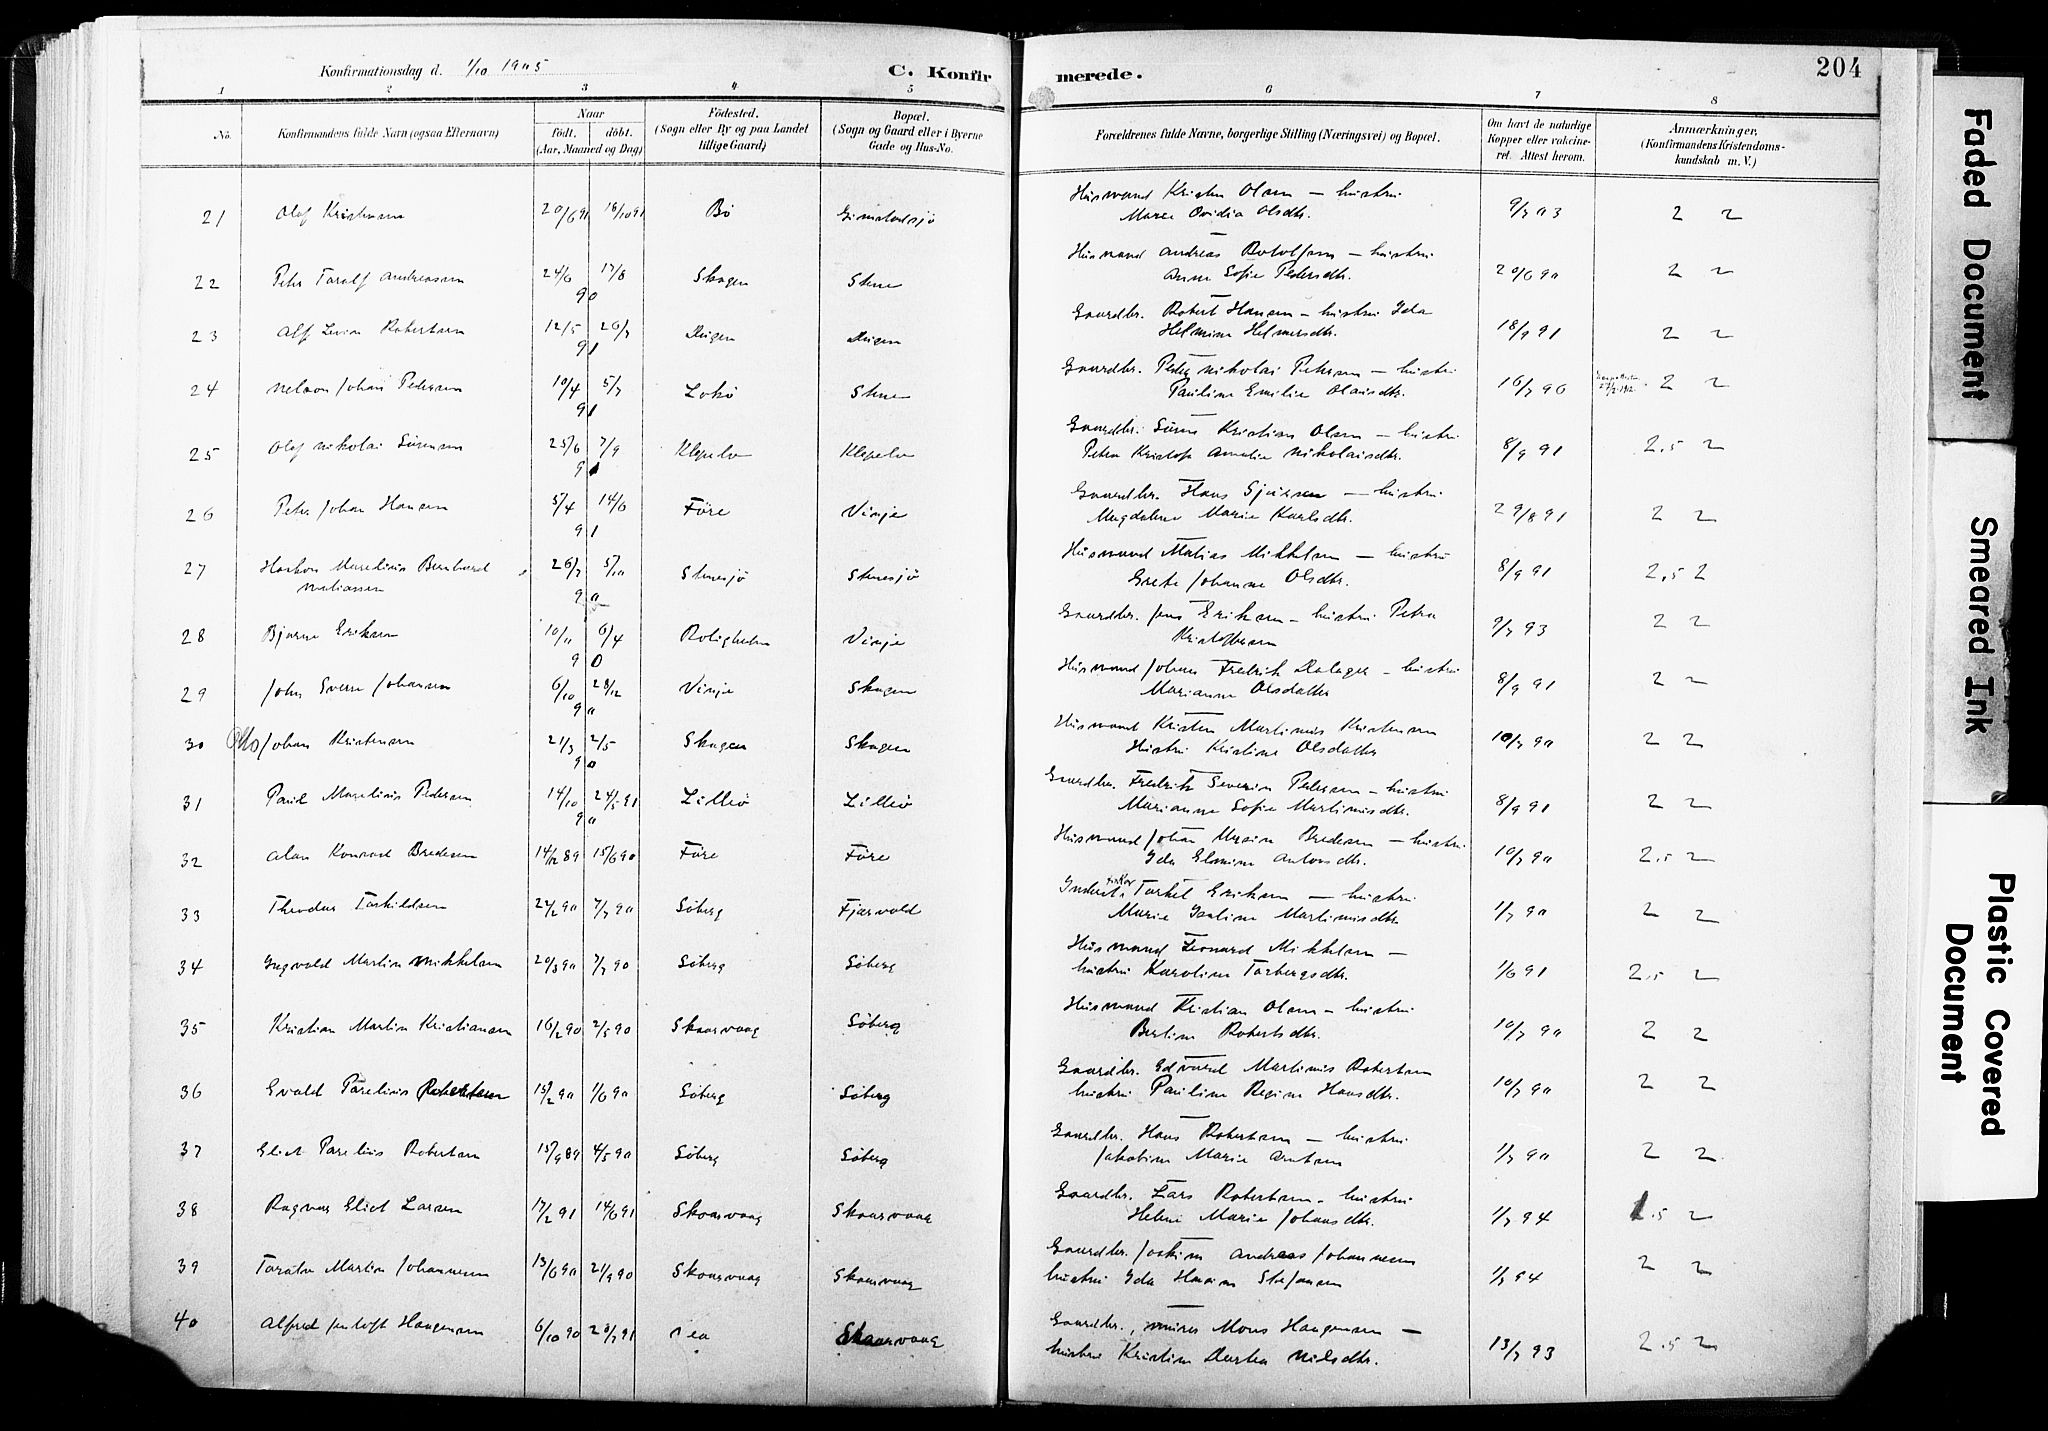 Konfirmationsdag d. 1/10 1905
C. Konfirmerede.
204
1 2 3 4 5 6 7 8
No.
Konfirmandens fulde Navn (ogsaa Efternavn)
Naar
födt. döbt.
(Aar, Maaned og Dag)
Födested.
(Sogn eller By og paa Landet
tillige Gaard)
Bopæl.
(Sogn og Gaard eller i Byerne
Gade og Hus-No.
Forældrenes fulde Navne, borgerlige Stilling (Næringsvei) og Bopæl.
Om havt de naturlige
Kopper eller vakcine-
ret. Attest herom.
Anmærkninger,
(Konfirmandens Kristendoms-
kundskab m. V.)
21 Olaf Kristensen 20/6 91 18/10 91 Bö Grimstadsjö Husmand Kristen Olsen — hustru 9/7 03 2 2
Maren Ovidia Olsdtr.
22 Peter Toralf Andreassen 24/6 17/8 90 Skagen Stene Husmand Andreas Rotolfsen — hustru 20/6 90 2 2
Anne Sofie Pedersdtr.
23 Alf Robertsen 12/5 26/7 91 Gaardbr. Robert Hansen — hustru Ida 18/9 91 2 2
Helmine Helmersdtr.
24 Nelson Johan Pedersen 10/4 5/7 91 Stene Gaardbr. Peder Nikolai Petersen — hustru 16/7 96 2 2
Pauline Emilie Olaisdtr.
25 Olaf Nikolai Sörensen 25/6 7/9 91 Klepelv Klepelv Gaardbr. Sören Kristian Olsen — hustru 8/9 91 2.5 2
Petra Amalie Nikolaisdtr.
26 Peter Johan Hansen 5/4 14/6 91 Före Vinje Gaardbr. Hans Sjursen — hustru 29/8 91 2 2
Magdalena Marie Karlsdtr.
27 Haakon Marelius Bernhard 26/7 5/10 90 Stenesjö Stenesjö Husmand Matias Mikkelsen — hustru 8/9 91 2,5 2
Matiassen Grete Johanne Olsdtr.
28 Bjarne Eriksen 10/11 6/4 90 Roligheten Vinje Gaardbr. Jens Eriksen — hustru Petra 9/7 93 2 2
Kristoffersen
29 John Sverre Johansen 6/10 28/12 90 Vinje Skagen Husmand Johan Fredrik Dalager — hustru 8/9 91 2 2
Marianne Olsdatter
30 Otto Johan Kristensen 21/3 2/5 90 Skagen Skagen Husmand Kristen Martinus Kristensen 10/7 90 2 2
Hustru Kristine Olsdatter
31 Paul Marelius Pedersen 14/10 90 24/5 91 Lilleö Lilleö Gaardbr. Fredrik Severin Pedersen — hustru 8/9 91 2 2
Marianne Sofie Martinusdtr.
32 Konrad Bredesen 14/12 89 15/6 90 Före Före Husmand Johan Bredesen — hustru 10/7 90 2.5 2
Ida Elmine Antonsdtr.
33 Theodor Torkildsen 22/2 90 7/7 90 Söberg Fjærvold Torkel Eriksen — hustru 1/7 90 2 2
Marie Martinusdtr
34 Ingvald Martin Mikkelsen 20/3 90 7/7 90 Söberg Söberg Husmand Leonard Mikkelsen — 1/6 91 2.5 2
hustru Karoline Torbergsdtr.
35 Kristian Martin Kristiansen 16/2 90 2/5 90 Skaarvaag Söberg Husmand Kristian Olsen — hustru 10/7 90 2 2
Berline Robertsdtr.
36 Evald Parelius Robertsen 15/2 90 1/6 90 Söberg Söberg Gaardbr. Edvard Martinus Robertsen 10/7 90 2 2
hustru Pauline Regine Hansdtr.
37 Eliot Parelius Robertsen 15/9 89 4/5 90 Söberg Söberg Gaardbr. Hans Robertsen — hustru 1/7 90 2 2
Jakobine Marie Arntsen
38 Ragnar Eliot Larsen 17/2 91 14/6 91 Skaarvaag Skaarvaag Gaardbr. Lars Robertsen — hustru 1/7 94 1.5 2
Helene Marie Johansdtr.
39 Martin Johannesen 13/6 90 21/9 90 Skaarvaag Skaarvaag Gaardbr. Joakim Andreas Johannesen 1/7 94 2 2
hustru Ida Stefansen
40 Alfred Jentoft Haagensen 6/10 90 28/7 91 Skaarvaag Gaardbr., Mons Haagensen — 13/7 93 2.5 2
hustru Kristine Dortea Nilsdtr.
Faded Document
Smeared Ink
Plastic Covered
Document